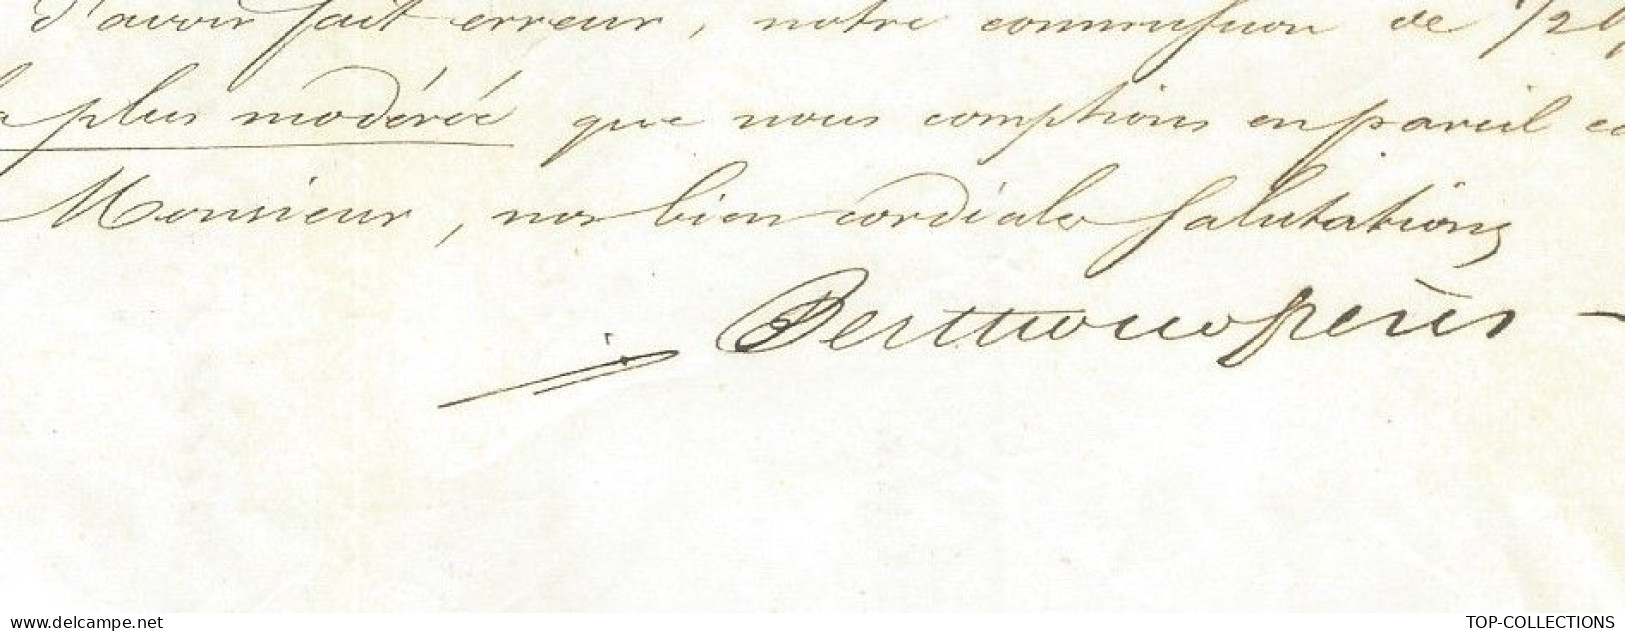 d'avoir fait erreur, notre commission de 1/2
plus modérée que nous comptions en pareil
Monsieur, nos bien cordiales salutations
frères
delcampe.net
TOP-COLLECTIONS